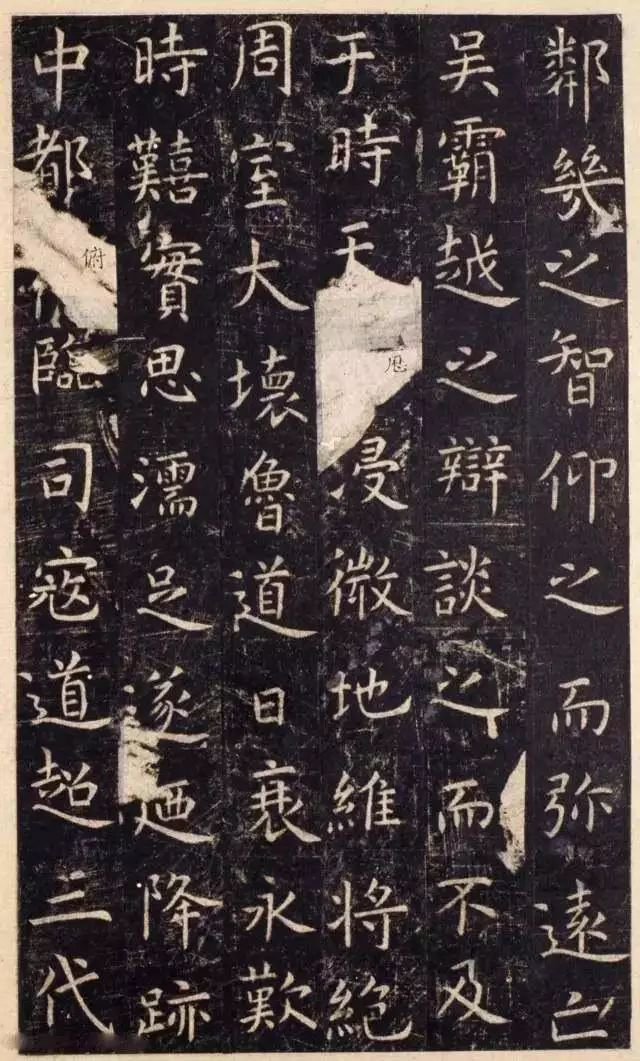 鄰幾之智仰之而弥遠亡
吳霸越之辯談之而不及
于時天浸微地維將絕
周室大壞魯道日衰永歎
時囏實思濡足遂迺降跡
中都俯臨司寇道超三代